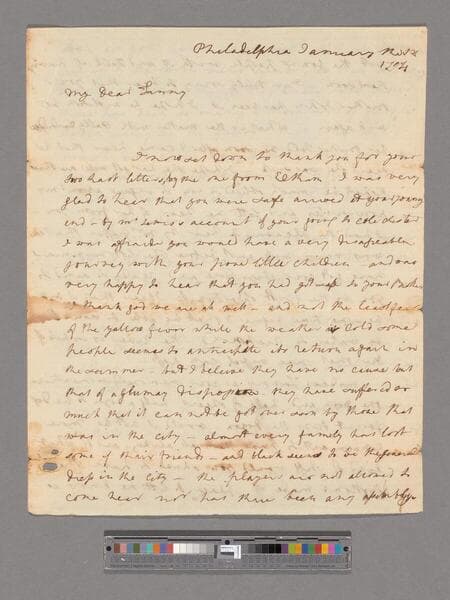 Philadelphia January
1794
My Dear Fanny
I now set down to thank you for your
two last letters, by the one from Elkton I was very
glad to hear that you were safe arrived at your journey
end - by mr account of your going to
I was affraide you would have a very disagreeable
journey with your poor little children - and was
very happy to hear that you had got safe to your Brothers
thank god we are all well - and not the least fear
of the yallow fever while the weather is cold some
people seemes to anticipate its return again in
the summer - but I beleive they have no cause but
that of a glumay disposion they have suffered so
much that it can not be got over soon by those that
was in the city - almost every family has lost
some of thair friends - and black seems to be the general
dress in the city - the players are not allowed to
come hear nor has there been any assembly